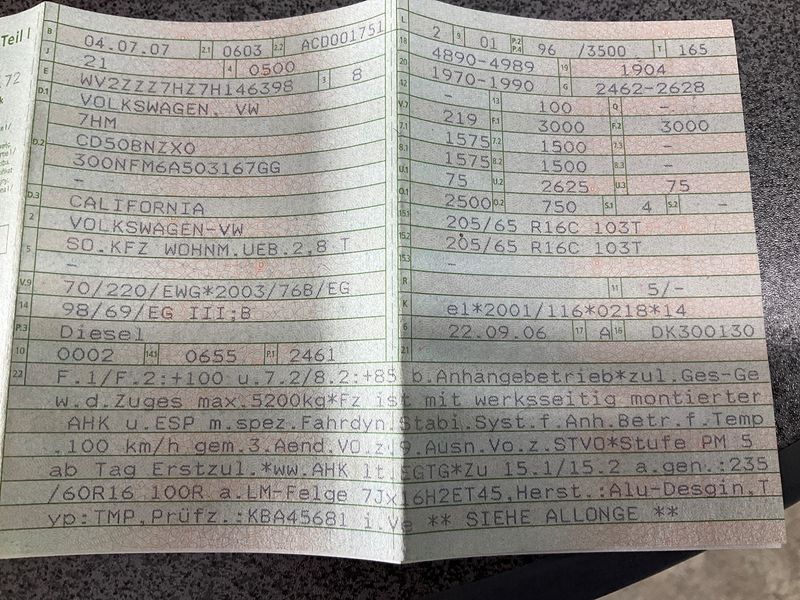 Teil I
B 04.07.07 2.1 0603 2.2 ACD001751
J 21 4 0500
E WV2ZZZ7HZ7H146398 3 8
D.1 VOLKSWAGEN, VW
7HM
D.2 CD50BNZX0
300NFM6A503167GG
-
D.3 CALIFORNIA
2 VOLKSWAGEN-VW
5 SO.KFZ WOHNM.UEB.2,8 T
-
V.9 70/220/EWG*2003/76B/EG
14 98/69/EG III;B
P.3 Diesel
10 0002 14.1 0655 P.1 2461
L 2 9 01 P.2 P.4 96 /3500 T 165
18 4890-4989 19 1904
20 1970-1990 G 2462-2628
- 13 100 Q -
V.7 219 F.1 3000 F.2 3000
7.1 1575 7.2 1500 7.3 -
8.1 1575 8.2 1500 8.3 -
U.1 75 U.2 2625 U.3 75
O.1 2500 O.2 750 S.1 4 S.2 -
15.1 205/65 R16C 103T
15.2 205/65 R16C 103T
15.3 -
R 11 5/-
K e1*2001/116*0218*14
6 22.09.06 17 A 16 DK300130
21
22 F.1/F.2:+100 u.7.2/8.2:+85 b.Anhängebetrieb*zul.Ges-Ge
w.d.Zuges max.5200kg*Fz ist mit werksseitig montierter
AHK u.ESP m.spez.Fahrdyn.Stabi.Syst.f.Anh.Betr.f.Temp
.100 km/h gem.3.Aend.VO.z.9.Ausn.Vo.z.STVO*Stufe PM 5
ab Tag Erstzul.*ww.AHK lt.EGTG*Zu 15.1/15.2 a.gen.:235
/60R16 100R a.LM-Felge 7Jx16H2ET45,Herst.:Alu-Desgin,T
yp:TMP,Prüfz.:KBA45681 i.Ve ** SIEHE ALLONGE **